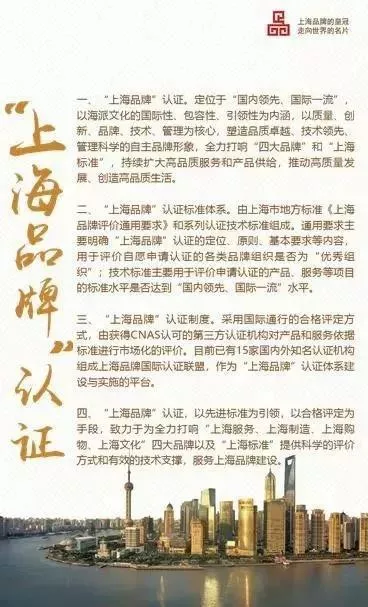 上海品牌的皇冠
走向世界的名片
“上海品牌”认证
一、“上海品牌”认证。定位于“国内领先、国际一流”，
以海派文化的国际性、包容性、引领性为内涵，以质量、创
新、品牌、技术、管理为核心，塑造品质卓越、技术领先、
管理科学的自主品牌形象，全力打响“四大品牌”和“上海
标准”，持续扩大高品质服务和产品供给，推动高质量发
展、创造高品质生活。
二、“上海品牌”认证标准体系。由上海市地方标准《上海
品牌评价通用要求》和系列认证技术标准组成。通用要求主
要明确“上海品牌”认证的定位、原则、基本要求等内容，
用于评价自愿申请认证的各类品牌组织是否为“优秀组
织”；技术标准主要用于评价申请认证的产品、服务等项目
的标准水平是否达到“国内领先、国际一流”水平。
三、“上海品牌”认证制度。采用国际通行的合格评定方
式，由获得CNAS认可的第三方认证机构对产品和服务依据
标准进行市场化的评价。目前已有15家国内外知名认证机构
组成上海品牌国际认证联盟，作为“上海品牌”认证体系建
设与实施的平台。
四、“上海品牌”认证，以先进标准为引领，以合格评定为
手段，致力于为全力打响“上海服务、上海制造、上海购
物、上海文化”四大品牌以及“上海标准”提供科学的评价
方式和有效的技术支撑，服务上海品牌建设。